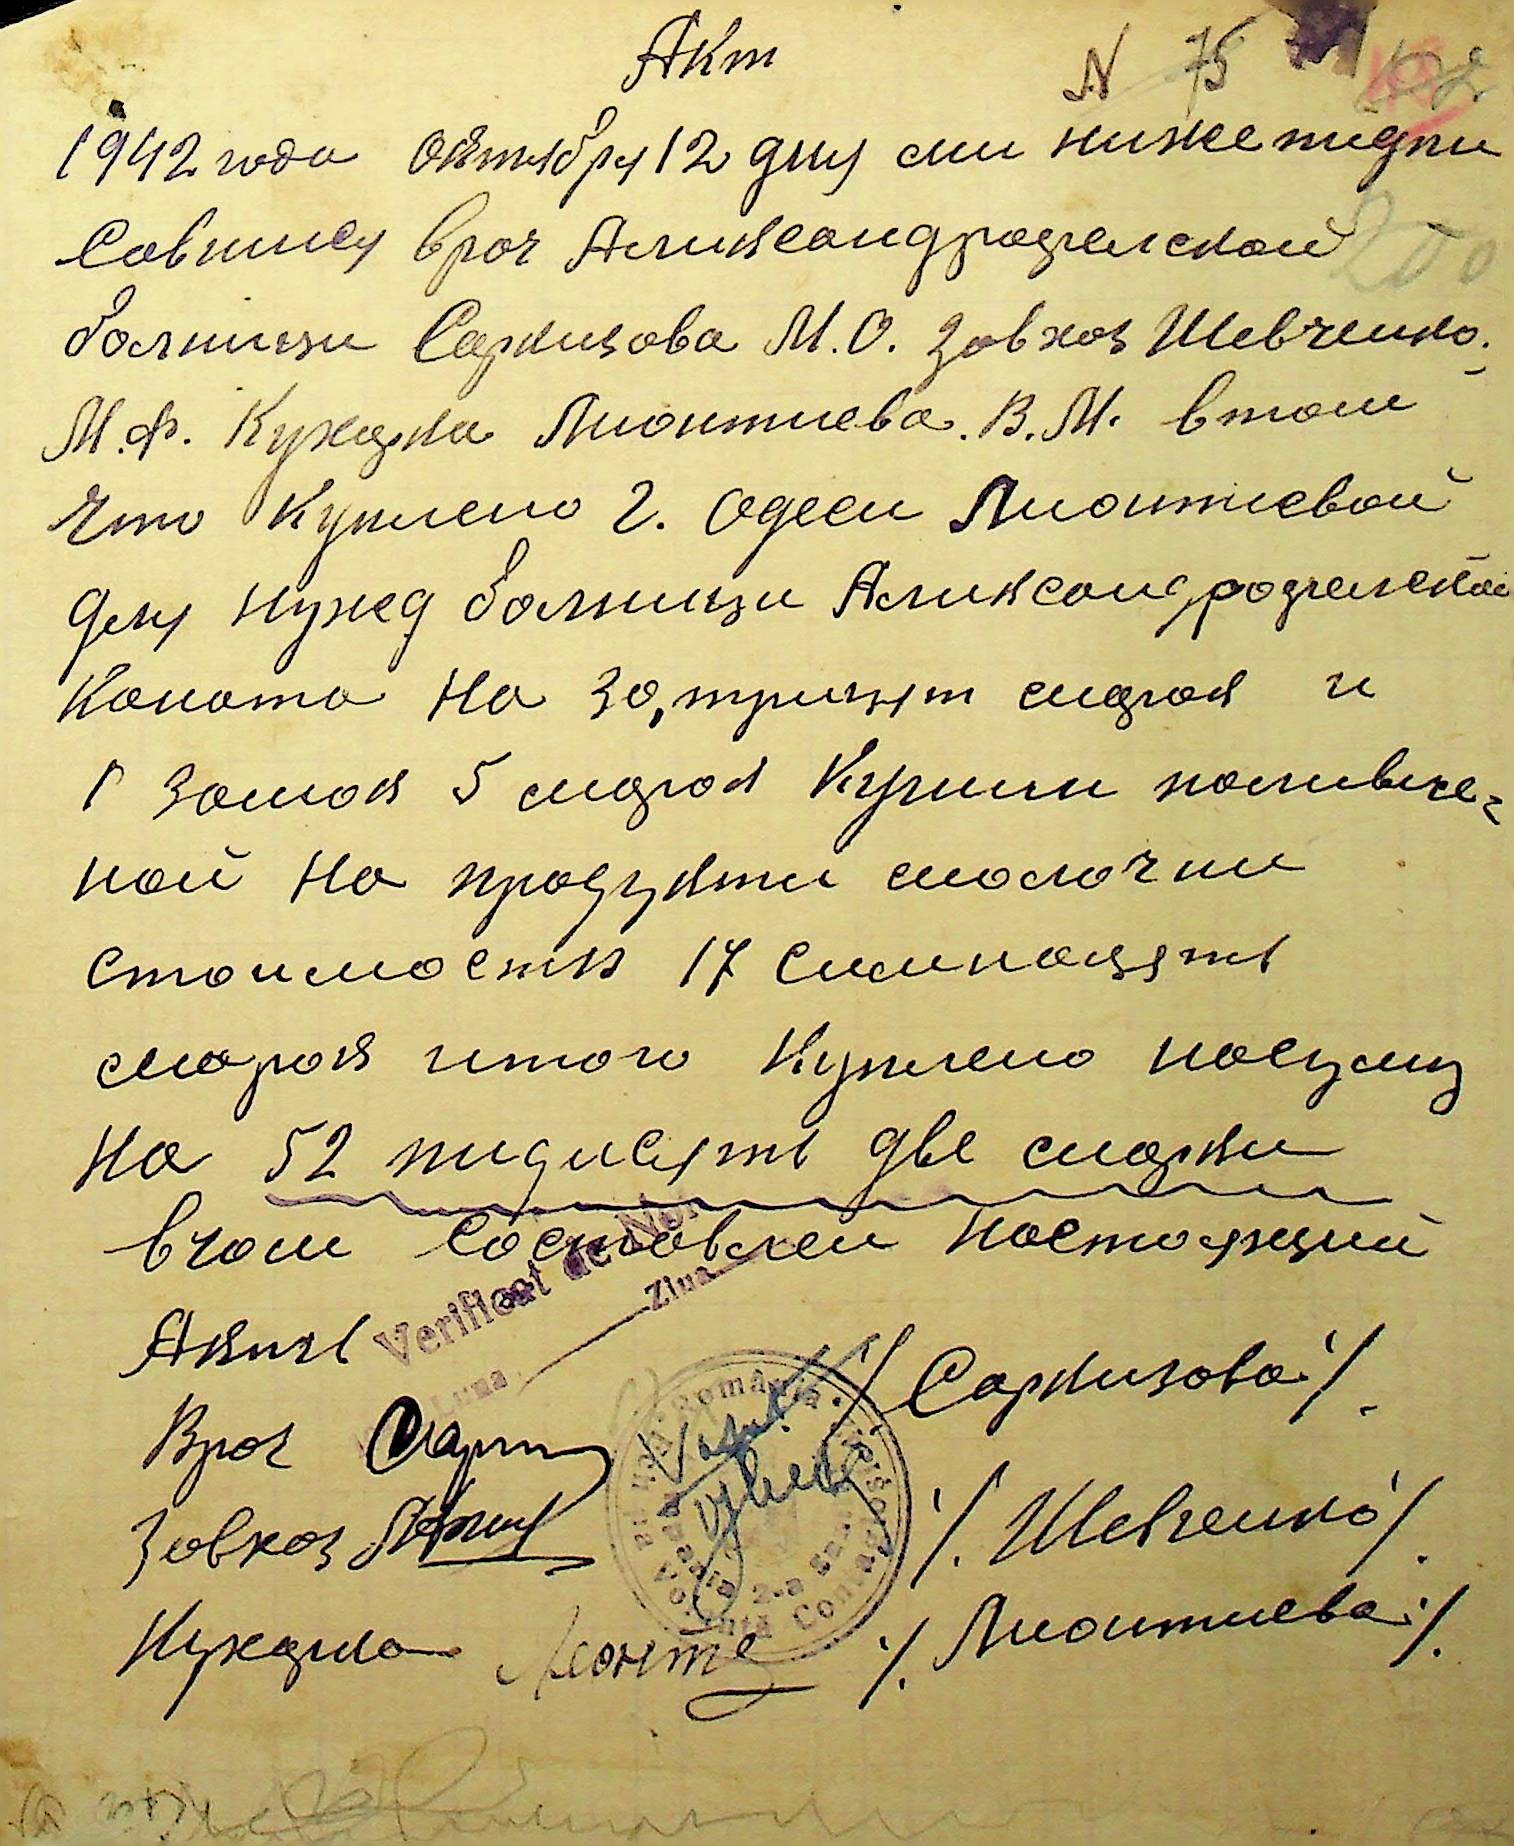 Акт
N 75
1942 года октября 12 дня ми нижеподпи
савшися врач Александродгелской
болници Саркизова М.О. Завхоз Шевченко.
М.Ф. Кухарка Лионтиева. В.М. втом
что куплено г. Одеси Лионтиевой
для нужд болници Александродгелской
Каната на 30, трицят марок и
1 замок 5 марок Купили
ной на продукти молочни
стоимостю 17 симнацять
марок итого куплено посуди
на 52 пидисять две марки
вчом составлен настоящий
Акть
Verificat de Noi
Luna Ziua
Врач /Саркизова/.
Завхоз /.Шевченко/.
Кухарка Леонте /.Лионтиева/.
200